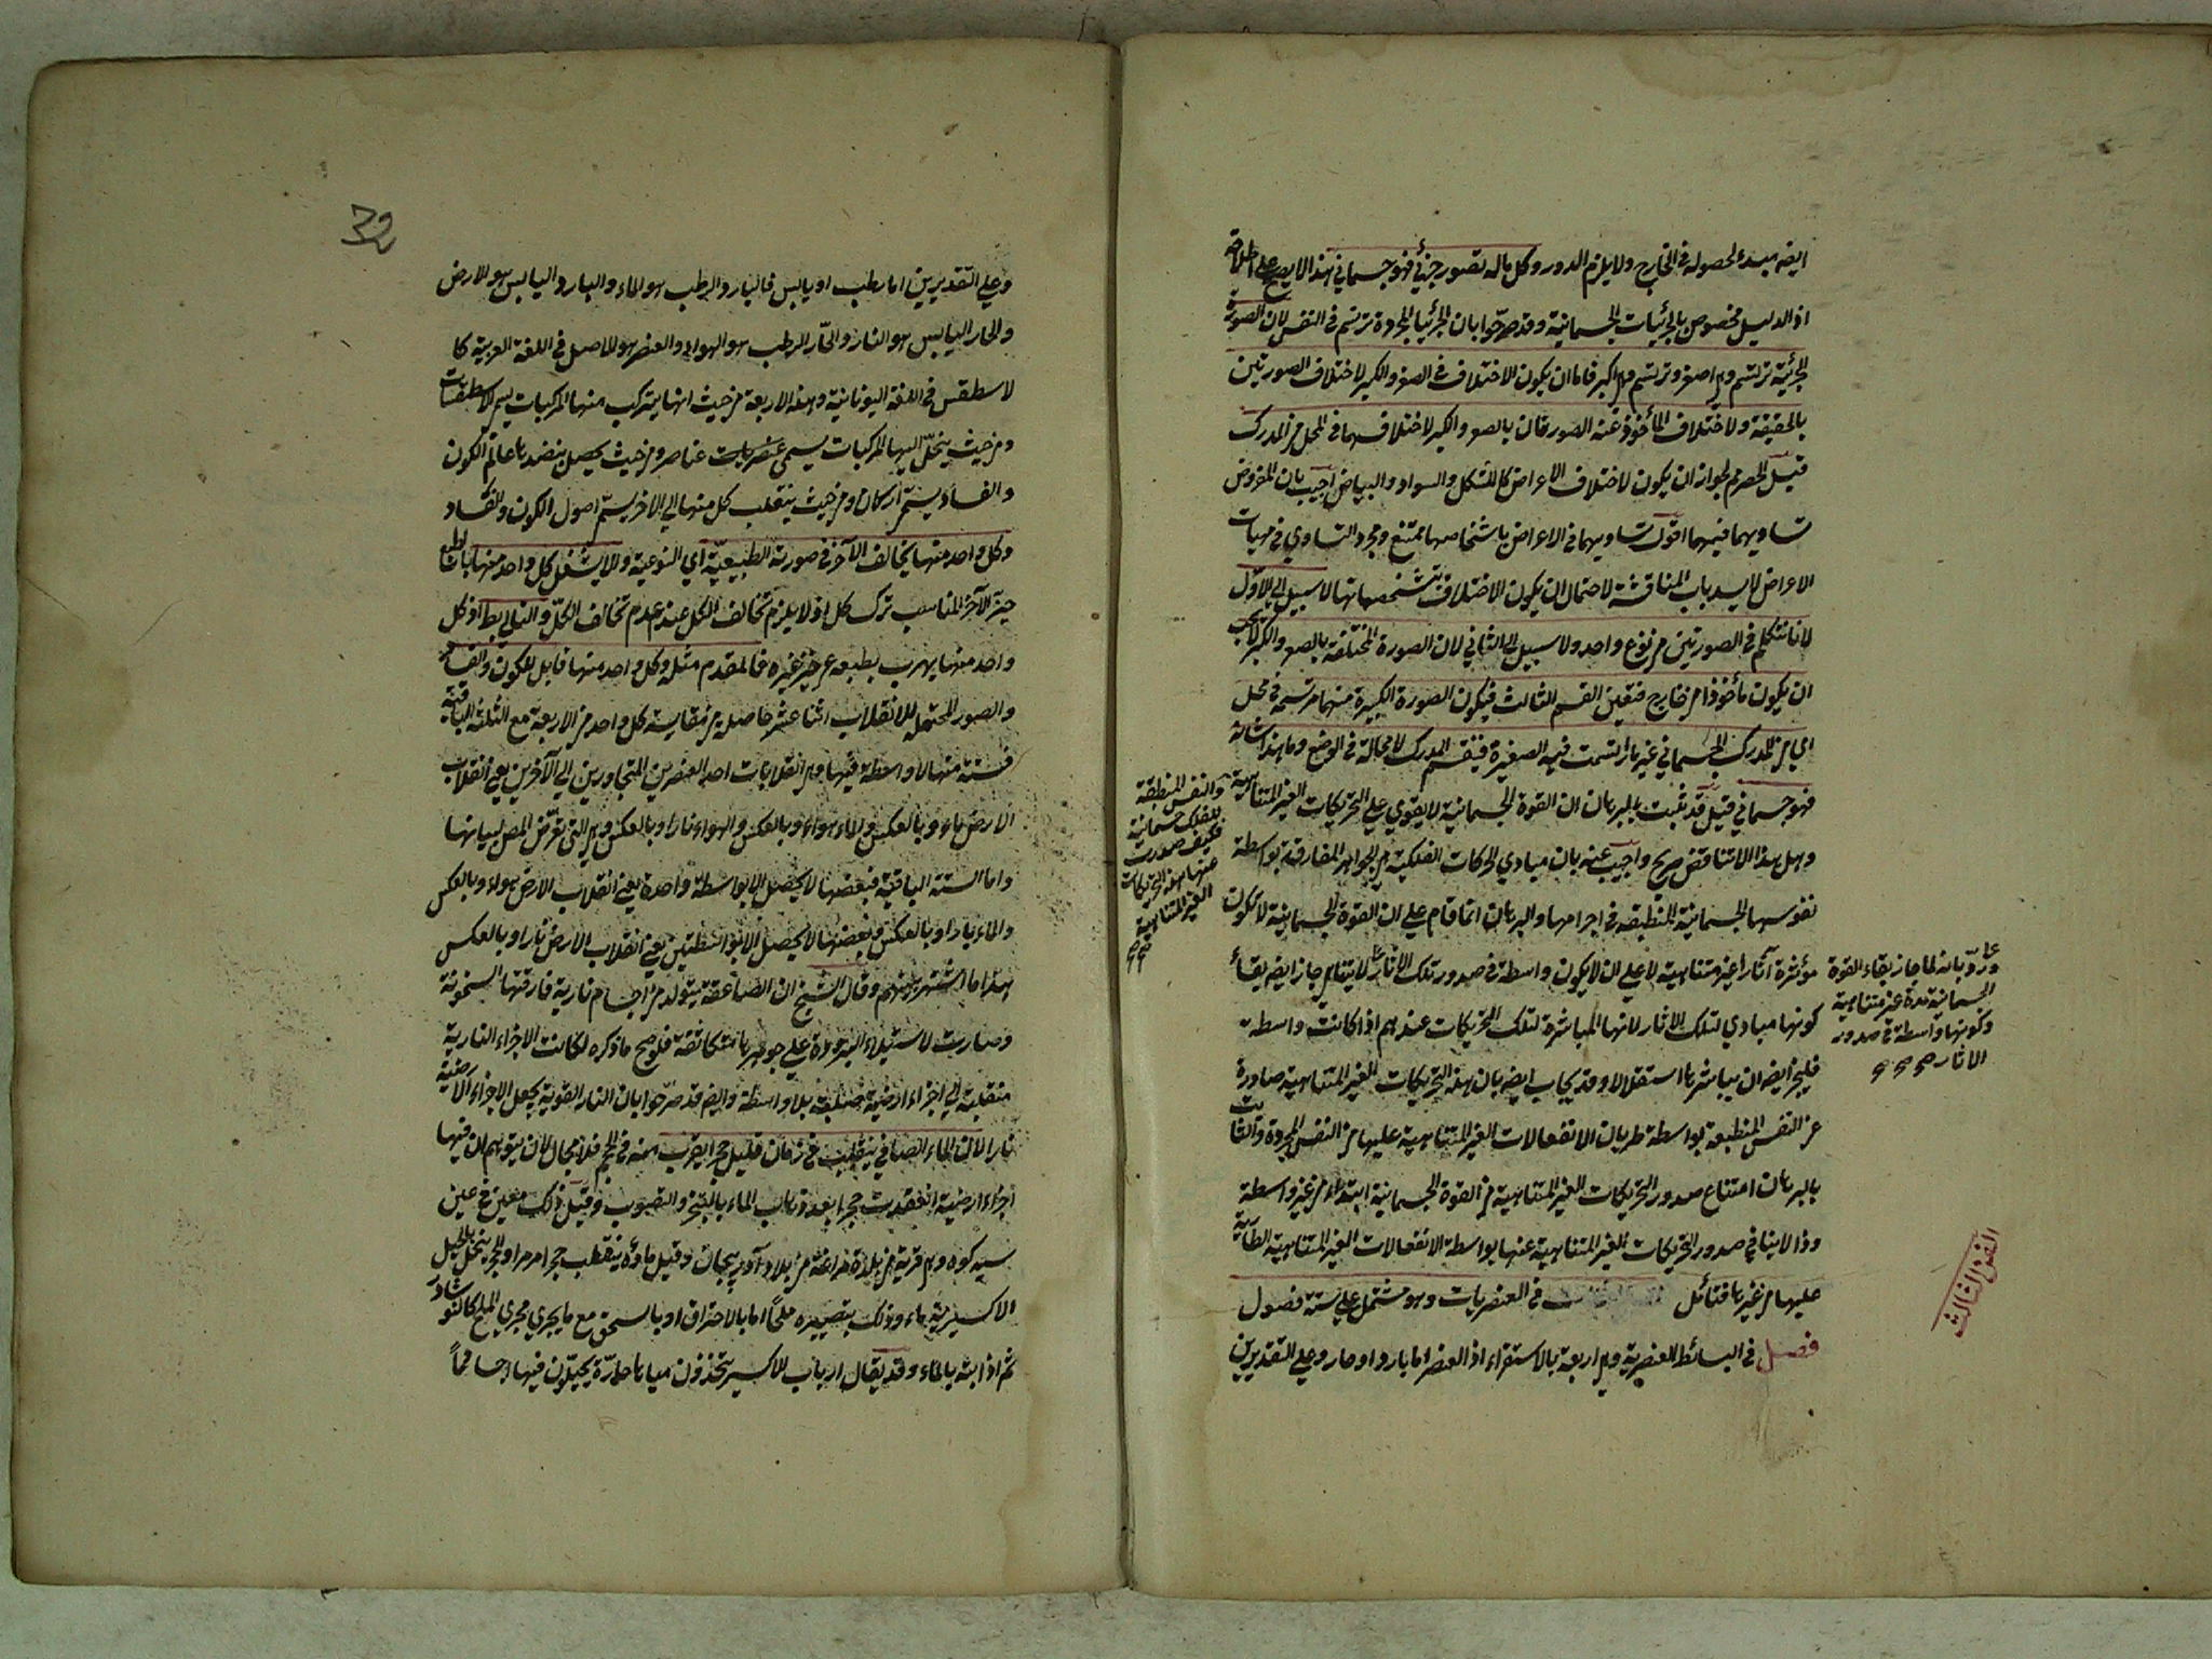 ايضه مبدء لحصوله في الخارج ولا يلزم الدور وكل ماله تصور جزئي فهو جسماني هذا لا يصح على اطلاقه
اذ الدليل مخصوص بالجزئيات الجسمانية وقد صرحوا بان الجزئيات المجردة ترتسم في النفس لان الصورة
الجزئية ترتسم وهي اصغر وترتسم وهي اكبر فاما ان يكون الاختلاف في الصغر والكبر لاختلاف الصورتين
بالحقيقة ولاختلاف المأخوذ عنه الصورتان بالصغر والكبر لاختلافهما في المحل من المدرك
قيل الحصر مم لجواز ان يكون لاختلاف الاعراض كالشكل والسواد والبياض اجيب بان المفروض
تساويهما فيهما اقول تساويهما في الاعراض باشخاصها ممتنع ومجرد التساوي في مهيات
الاعراض لا يسد باب المناقشة لاحتمال ان يكون الاختلاف بتشخصهاتها لا سبيل الى الاول
لانا نتكلم في الصورتين من نوع واحد ولا سبيل الى الثاني لان الصورة المختلفة بالصغر والكبر لا يجب
ان يكون مأخوذا من خارج فتعين القسم الثالث فيكون الصورة الكبيرة منهما مرتسمة في محل
اي من المدرك الجسماني غير ما ارتسمت فيه الصغيرة فينقسم المدرك لا محالة في الوضع وما هذا شانه
فهو جسماني قيل قد ثبت بالبرهان ان القوة الجسمانية لا يقوي على التحريكات الغير المتناهية
والنفس المنطبقة
للفلك جسمانية
فكيف صدرت
عنها هذه التحريكات
الغير المتناهية
صح
وهل هذا الا تناقض صريح واجيب عنه بان مبادي الحركات الفلكية هي الجواهر المفارقة بواسطة
نفوسها الجسمانية المنطبقة في اجرامها والبرهان انما قام على ان القوة الجسمانية لا يكون
مؤثرة آثارا غير متناهية لا على ان لا يكون واسطة في صدور تلك الاثار لا يتناهي جاز ايضه بقاء
وردّ بانه لما جاز بقاء القوة
الجسمانية مدة غير متناهية
وكونها واسطة في صدور
الاثار صح صح
كونها مبادي لتلك الاثار لانها المباشرة لتلك التحريكات عندهم اذا كانت واسطة
فليجز ايضه ان يباشرها استقلالا وقد يجاب ايضه بان هذه التحريكات الغير المتناهية صادرة
عن النفس المنطبعة بواسطة طريان الانفعالات الغير المتناهية عليها من النفس المجردة والثابت
بالبرهان امتناع صدور التحريكات الغير المتناهية من القوة الجسمانية ابتداء من غير واسطة
وذا لا ينافي صدور التحريكات الغير المتناهية عنها بواسطة الانفعالات الغير المتناهية الطارية
عليها من غيرها فتأمل في العنصريات وهو مشتمل على ستة فصول
الفن الثالث
فصل في البسائط العنصرية وهي اربعة بالاستقراء اذ العنصر اما بارد او حار وعلى التقديرين
32
وعلى التقديرين اما رطب او يابس فالبارد الرطب هو الماء والبارد اليابس هو الارض
والحار اليابس هو النار والحارّ الرطب هو الهواء والعنصر هو الاصل في اللغة العربية كا
لاسطقس في اللغة اليونانية وهذه الاربعة من حيث انها يتركب منها المركبات يسمى الاسطقسات
ومن حيث ينحلّ اليها المركبات يسمى عنصريات عناصر ومن حيث يحصل بنضدها عالم الكون
والفساد يسمّى اركان ومن حيث ينقلب كل منها الى الاخر يسمّى اصول الكون والفساد
وكل واحد منها يخالف الآخر في صورته الطبيعيّة اي النوعية والا لا يشغل كل واحد منها بالطبع
حيز الآخر المناسب ترك كل اذ لا يلزم تخالف الكل عند عدم تخالف الكلّ والتالي بط اذ كل
واحد منها يهرب بطبعه عن حيز غيره فالمقدم مثله وكل واحد منها قابل للكون والفساد
والصور المحتملة للانقلاب اثنا عشر حاصلة من مقايسة كل واحد من الاربعة مع الثلثة الباقية
فستة منها لا واسطة فيها وهي انقلابات احد العنصرين المتجاورين الى الآخرين يعني انقلاب
الارض ماء وبالعكس والماء هواء وبالعكس والهواء نارا وبالعكس وهي التي تعرّض المص لبيانها
واما الستة الباقية فبعضها لا يحصل الا بواسطة واحدة يعني انقلاب الارض هواء وبالعكس
والماء نارا وبالعكس وبعضها لا يحصل الا بواسطتين يعني انقلاب الارض نارا وبالعكس
هذا ما اشتهر بينهم وقال الشيخ ان الصاعقة يتولد من اجسام نارية فارقتها السخونة
وصارت لاستيلاء البرودة على جوهرها متكاثفة فلو صح ما ذكره لكانت الاجزاء النارية
منقلبة الى اجزاء ارضية صلبة بلا واسطة وايضه قد صرّحوا بان النار القوية يجعل الاجزاء الارضية
نارا لان الماء الصافي ينقلب في زمان قليل حجرا يقرب منه في الحجم فلا مجال لان يتوهم ان فيها
اجزاء ارضية انعقدت حجرا بعد ذهاب الماء بالتبخر والنضوب وقيل ذلك معين في عين
سيه كوه وهي قرية من بلدة مراغة من بلاد آذربيجان وقيل ماؤه ينقلب حجرا مرمرا والحجر ينحل بالحيل
الاكسيرية ماء وذلك بتصييره ملحاً اما بالاحتراق او بالسحق مع ما يجري مجري الملح كالنوشادر
ثم اذابته بالماء وقد يقال ارباب الاكسير يتخذون مياها حارّة يحلّون فيها اجساما